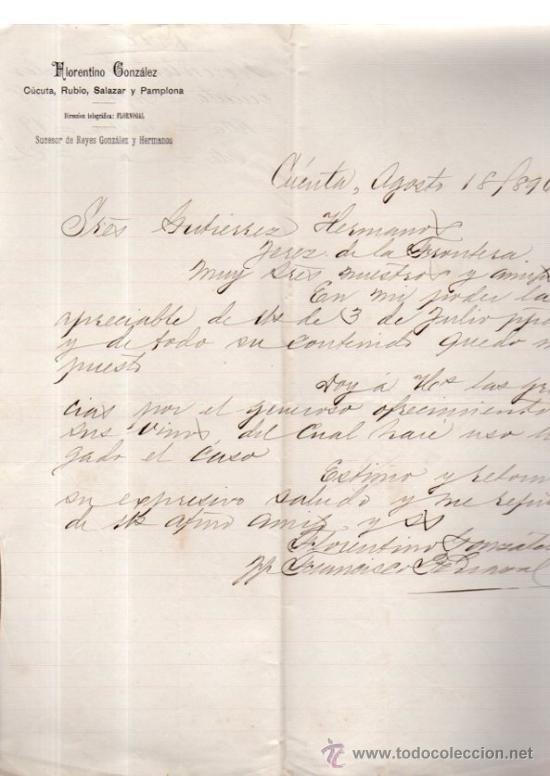 Florentino González
Cúcuta, Rubio, Salazar y Pamplona
Direccion telegráfica: FLORNOGAL
Sucesor de Reyes González y Hermanos
Cúcuta, Agosto 18/890
Sres Gutierrez Hermanos
Jerez de la Frontera
Muy Sres nuestros y amigos
En mi poder la
apreciable de Us de 3 de Julio ppo
y de todo su contenido quedo
puesto
Doy á Uds las gra
cias por el generoso ofrecimiento
sus vinos del cual haré uso
gado el caso
Estimo y retorn
su expresivo saludo y me
de Us afmo amigo y SS
Florentino Gonzále
pp Francisco
www.todocoleccion.net